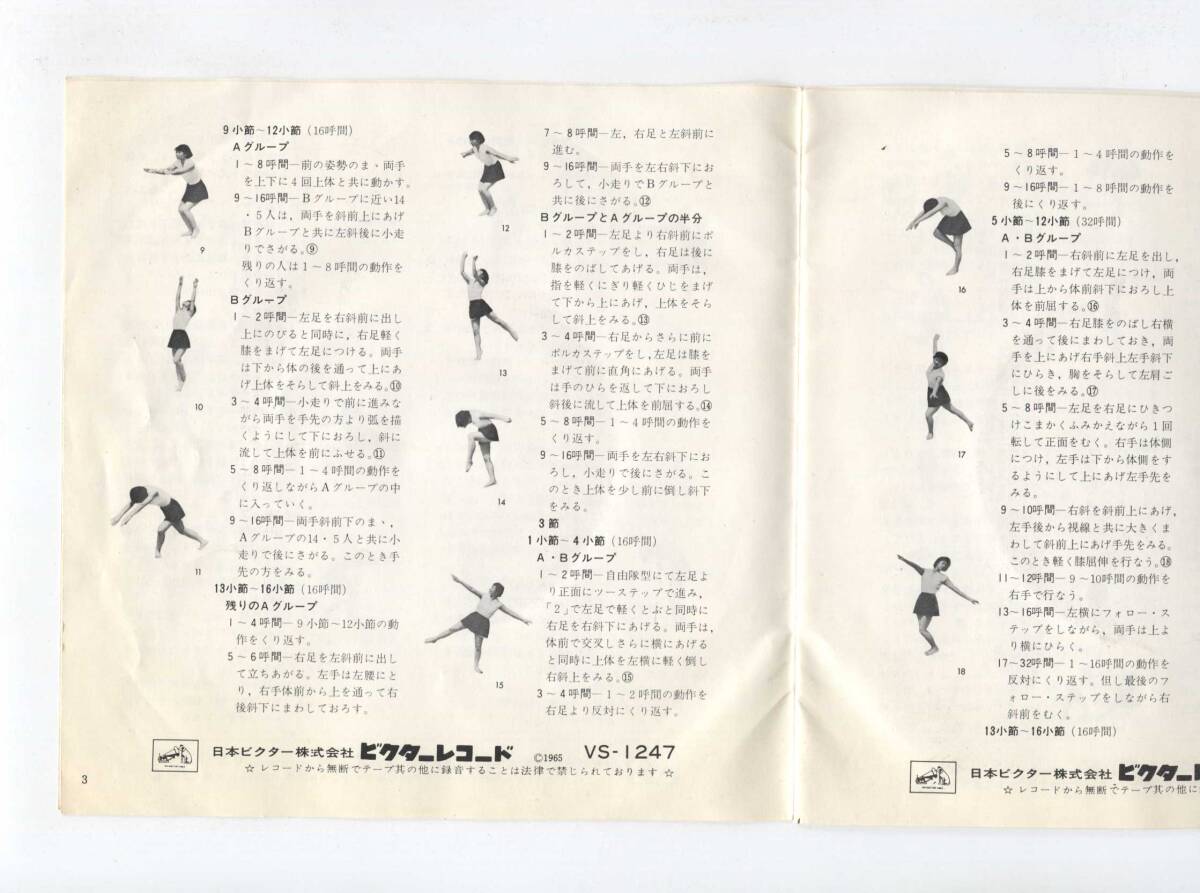 9小節〜12小節(16呼間)
Aグループ
1〜8呼間―前の姿勢のまゝ両手
を上下に4回上体と共に動かす。
9〜16呼間―Bグループに近い14
・5人は，両手を斜前上にあげ
Bグループと共に左斜後に小走
りでさがる。⑨
残りの人は1〜8呼間の動作を
くり返す。
Bグループ
1〜2呼間―左足を右斜前に出し
上にのびると同時に，右足軽く
膝をまげて左足につける。両手
は下から体の後を通って上にあ
げ上体をそらして斜上をみる。⑩
3〜4呼間―小走りで前に進みな
がら両手を手先の方より弧を描
くようにして下におろし，斜に
流して上体を前にふせる。⑪
5〜8呼間―1〜4呼間の動作を
くり返しながらAグループの中
に入っていく。
9〜16呼間―両手斜前下のまゝ，
Aグループの14・5人と共に小
走りで後にさがる。このとき手
先の方をみる。
13小節〜16小節(16呼間)
残りのAグループ
1〜4呼間―9小節〜12小節の動
作をくり返す。
5〜6呼間―右足を左斜前に出し
て立ちあがる。左手は左腰にと
り，右手体前から上を通って右
後斜下にまわしておろす。
9
10
11
7〜8呼間―左，右足と左斜前に
進む。
9〜16呼間―両手を左右斜下にお
ろして，小走りでBグループと
共に後にさがる。⑫
BグループとAグループの半分
1〜2呼間―左足より右斜前にポ
ルカステップをし，右足は後に
膝をのばしてあげる。両手は，
指を軽くにぎり軽くひじをまげ
て下から上にあげ，上体をそら
して斜上をみる。⑬
3〜4呼間―右足からさらに前に
ポルカステップをし，左足は膝を
まげて前に直角にあげる。両手
は手のひらを返して下におろし
斜後に流して上体を前屈する。⑭
5〜8呼間―1〜4呼間の動作を
くり返す。
9〜16呼間―両手を左右斜下にお
ろし，小走りで後にさがる。こ
のとき上体を少し前に倒し斜下
をみる。
3節
1小節〜4小節(16呼間)
A・Bグループ
1〜2呼間―自由隊型にて左足よ
り正面にツーステップで進み，
「2」で左足で軽くとぶと同時に
右足を右斜下にあげる。両手は，
体前で交叉しさらに横にあげる
と同時に上体を左横に軽く倒し
右斜上をみる。⑮
3〜4呼間―1〜2呼間の動作を
右足より反対にくり返す。
12
13
14
15
日本ビクター株式会社 ビクターレコード ©1965 VS-1247
☆ レコードから無断でテープ其の他に録音することは法律で禁じられております ☆
3
5〜8呼間―1〜4呼間の動作を
くり返す。
9〜16呼間―1〜8呼間の動作を
後にくり返す。
5小節〜12小節(32呼間)
A・Bグループ
1〜2呼間―右斜前に左足を出し，
右足膝をまげて左足につけ，両
手は上から体前斜下におろし上
体を前屈する。⑯
3〜4呼間―右足膝をのばし右横
を通って後にまわしておき，両
手を上にあげ右手斜上左手斜下
にひらき，胸をそらして左肩ご
しに後をみる。⑰
5〜8呼間―左足を右足にひきつ
けこまかくふみかえながら1回
転して正面をむく。右手は体側
につけ，左手は下から体側をす
るようにして上にあげ左手先を
みる。
9〜10呼間―右斜を斜前上にあげ，
左手後から視線と共に大きくま
わして斜前上にあげ手先をみる。
このとき軽く膝屈伸を行なう。⑱
11〜12呼間―9〜10呼間の動作を
右手で行なう。
13〜16呼間―左横にフォロー・ス
テップをしながら，両手は上よ
り横にひらく。
17〜32呼間―1〜16呼間の動作を
反対にくり返す。但し最後のフ
ォロー・ステップをしながら右
斜前をむく。
13小節〜16小節(16呼間)
16
17
18
日本ビクター株式会社 ビクター
☆ レコードから無断でテープ其の他に